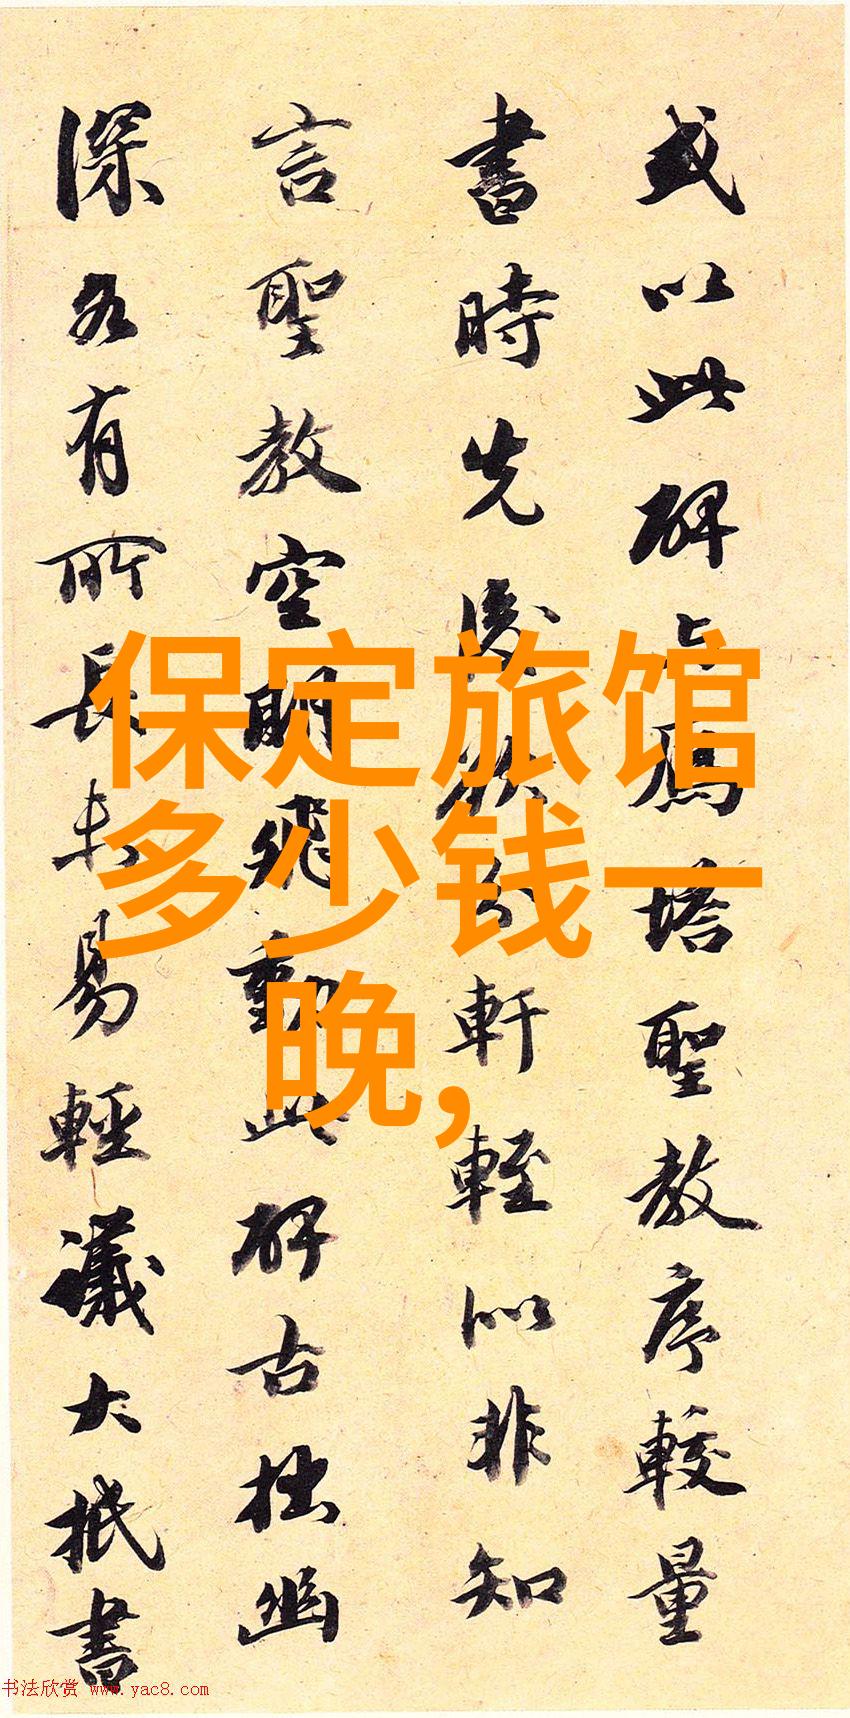 或以此碑与鴈塔聖教序較量
書時先後欲分軒輊似非知
言聖教空明飛動此碑古拙幽
深各有所長未易輕議大抵書
保定旅馆
多少钱一
晚,
书法欣赏 www.yac8.com